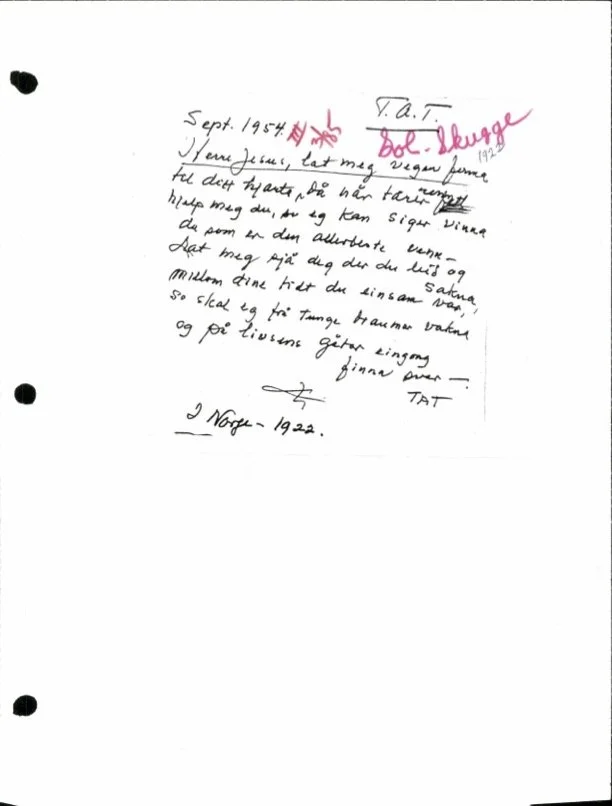 T.A.T.
Sept. 1954.
Sol-Skugge
192
Herre Jesus, lat meg vegen finna
til ditt hjarta, då når tårer
hjelp meg du, so eg kan siger vinna
du som er den allerbeste venn –
Lat meg sjå deg der du leid og
sakna,
millom dine tidt du einsam var,
so skal eg frå tunge draumar vakna
og på livsens gåtor eingong
finna svar —.
TAT
I Norge – 1922.